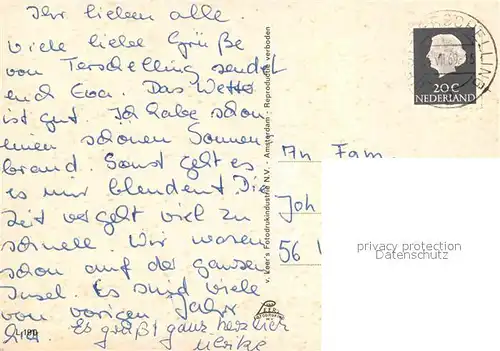 Ihr lieben alle.
Viele liebe Grüße
von Terschelling sendet
euch Eva. Das Wetter
ist gut. Ich habe schon
einen schönen Sonnen
brand. Sonst geht es
es mir blendent. Die
Zeit vergeht viel zu
schnell. Wir waren
schon auf der ganzen
Insel. Es sind viele
von vorigen Jahr
hier. Es grüßt ganz herzlich
Ulrike
L 190
v. Leer's Fotodrukindustrie N.V. - Amsterdam - Reproductie verboden
20 C
NEDERLAND
An Fam.
Joh
56
privacy protection
Datenschutz